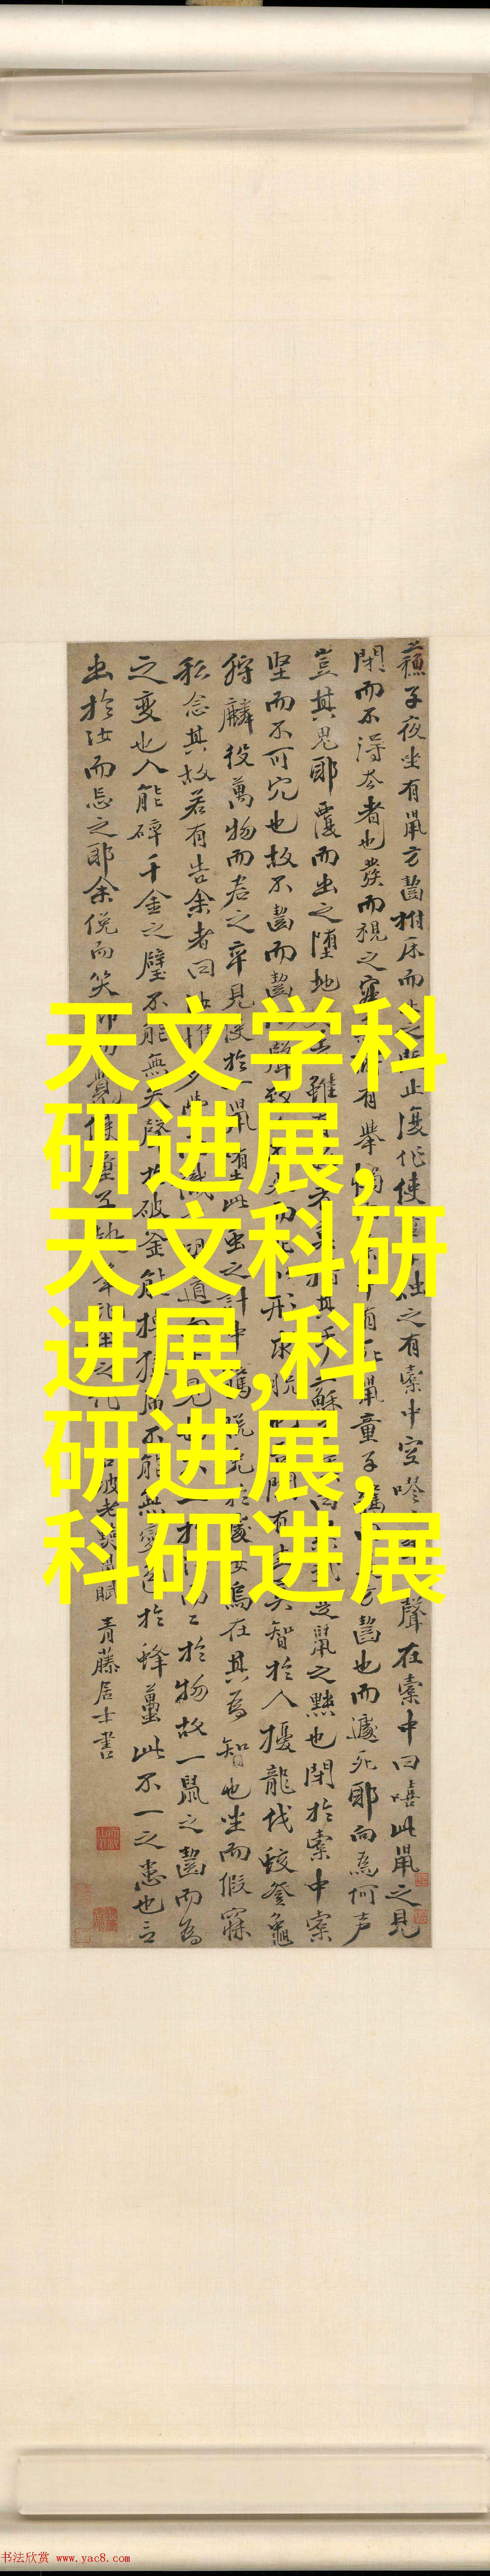 蘓子夜坐有鼠方齧拊床而止之既止復作使之有橐中空嘐聲在橐中曰嘻此鼠之見
閉而不得去者也發而視之有舉中有死鼠童子驚曰方齧也而遽死耶向為何声
豈其鬼耶覆而出之堕地雖其手蘇是鼠之黠也閉於橐中橐
坚而不可穴也故不齧而齧聲致形求脱聞有智於人擾龍伐蛟登龜
狩麟役萬物而君之卒見使於一鼠此虫之計中驚脱兔於處女烏在其為智也坐而假寐
私念其故若有告余者曰汝惟多道而見於物故一鼠之齧而為
之變也人能碎千金之璧不能無失聲於破釜能搏猛不能無變色於蜂蠆此不一之患也言
出於汝而忘之耶余俛而笑仰覺使童子執坡老鼠賦 青藤居士書
天文学科
研进展,
天文科研
进展,科
研进展,
科研进展
书法欣赏 www.yac8.com